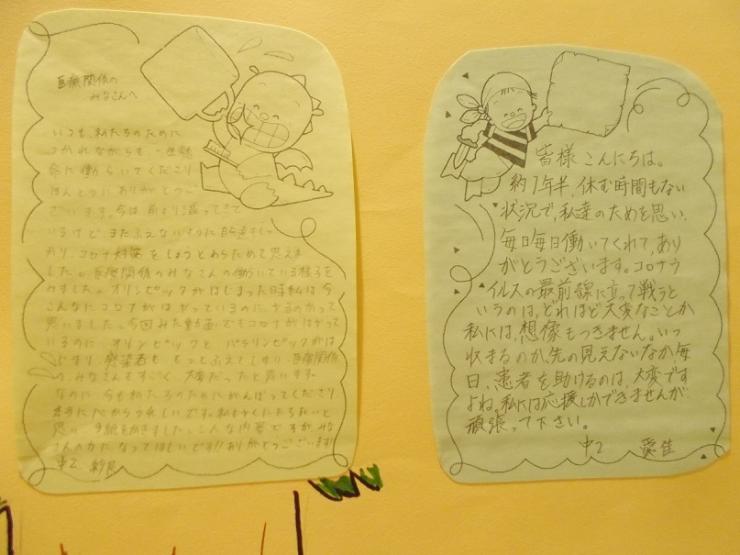 医療関係の
みなさんへ
いつも、私たちのために
つかれながらも一生懸
命に働いてくださり
ほんとうにありがとうご
ざいます。今は、前より減ってきて
いるけど、またふえないように
コロナ対策をしようとあらためて思え
ました。医療関係のみなさんの働いている様子を
みました。オリンピックがはじまった時私は今
こんなにコロナがはやっているのにやるのかって
思いました。今回みた動画でもコロナがはやって
いるのに、オリンピックとパラリンピックがは
じまり、感染者ももっとふえてしまい、医療関係
の、みなさんもすごく、大変だったと思います。
なのに、今も私たちのためにがんばってくださり
本当に心からうれしいです。
思い、手紙をかきました。こんな内容ですが、みな
さんの力になってほしいです!!ありがとうございます!
中2
皆様こんにちは。
約1年半、休む時間もない
状況で、私達のためを思い、
毎日毎日働いてくれて、あり
がとうございます。コロナウ
イルスの最前線に立って戦うと
いうのは、どれほど大変なことか
私には、想像もつきません。いつ
収まるのか先の見えないなか毎
日、患者を助けるのは、大変です
よね。私には応援しかできませんが
頑張って下さい。
中2 愛佳